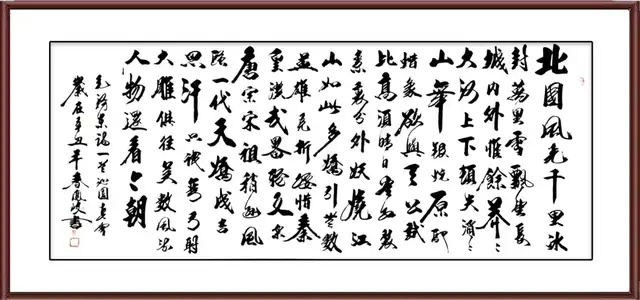 北國風光千里冰
封萬里雪飄望長
城内外惟餘莽々
大河上下頓失滔々
山舞銀蛇原馳
蜡象欲與天公試
比高須晴日看紅裝
素裹分外妖嬈江
山如此多嬌引無數
英雄競折腰惜秦
皇漢武畧輸文采
唐宗宋祖稍遜風
騷一代天驕成吉
思汗只識彎弓射
大雕俱往矣數風流
人物還看今朝
毛澤東詞一首沁園春雪
歲在辛丑年春書